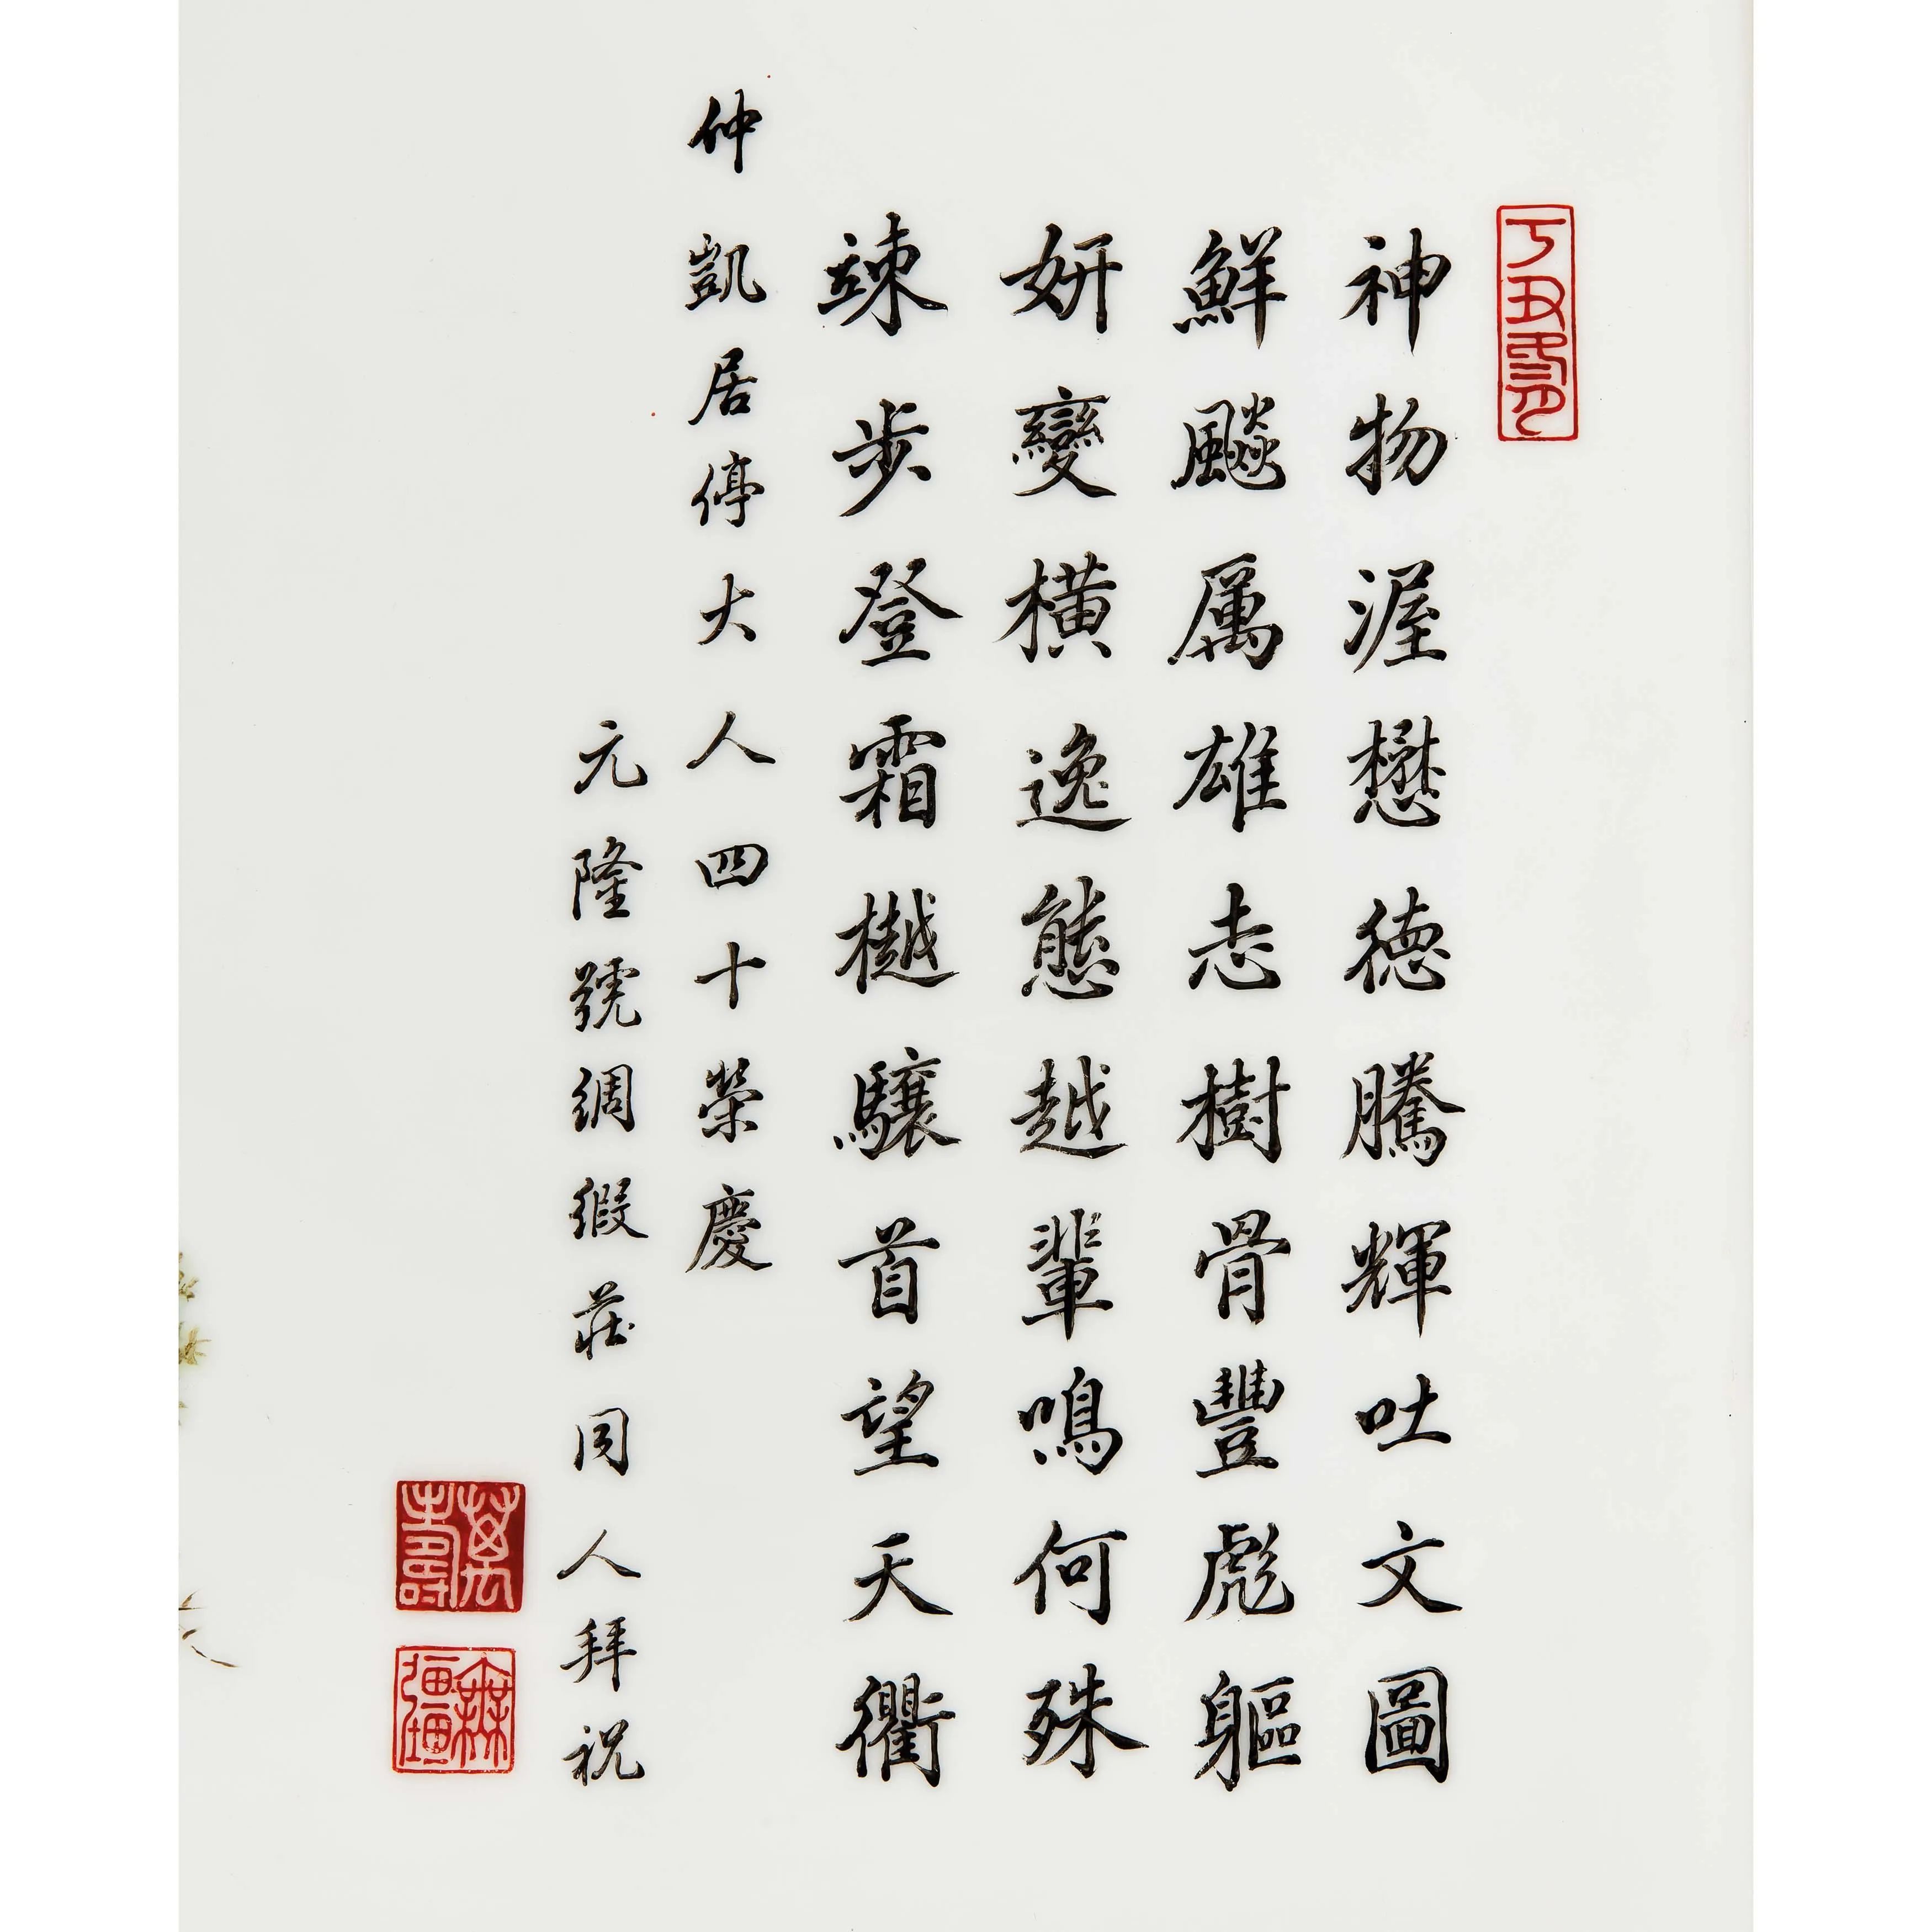 丁丑年印
神物渥懋德騰輝吐文圖
鮮飈厲雄志樹骨豐彪軀
妍變橫逸態越輩鳴何殊
竦步登霜樾驤首望天衢
仲凱居停大人四十榮慶
元隆號綢緞莊同人拜祝
萬壽
無疆